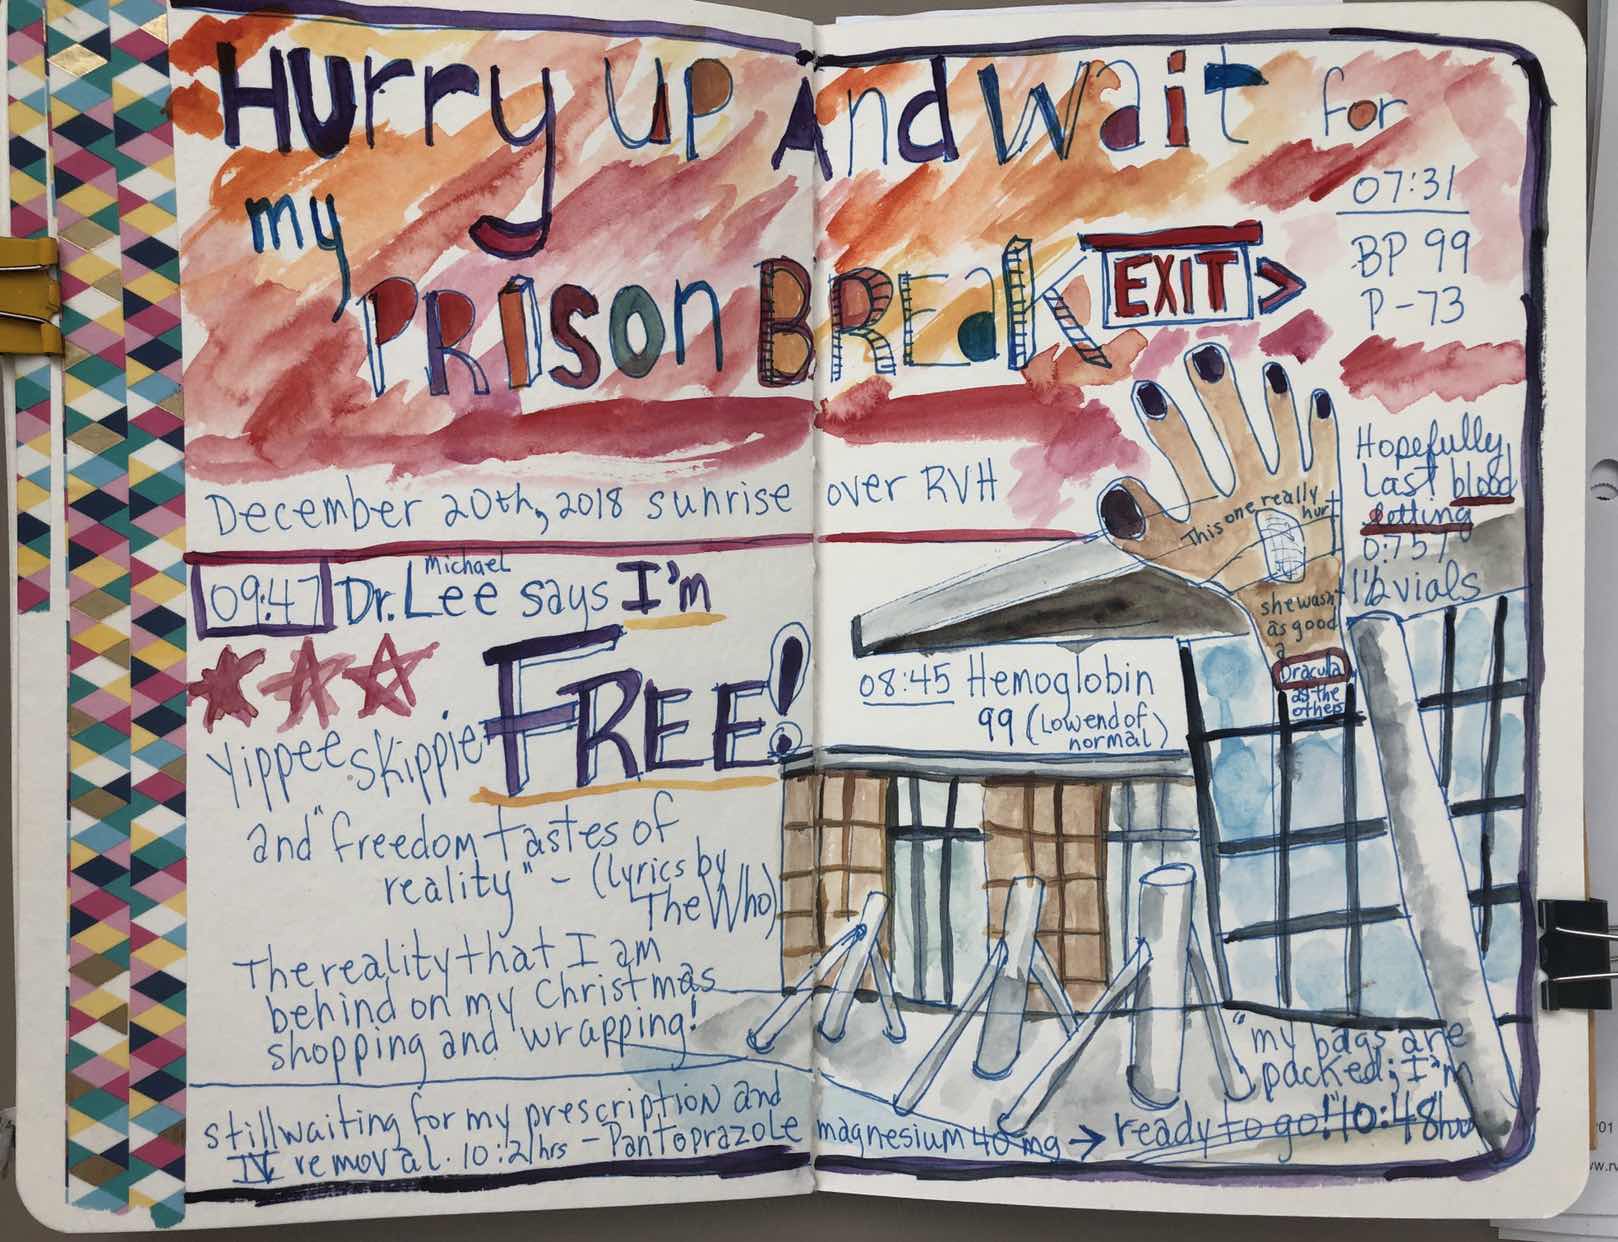 Hurry up And wait for
my
PRISON BREAK EXIT >
07:31
BP 99
P-73
December 20th, 2018 sunrise over RVH
Hopefully
Last blood
letting
0:757
1 1/2 vials
This one really
hurt
she wasn't
as good
a
Dracula
as the
others
09:47 Dr. Michael Lee says I'm
FREE!
Yippee skippie
and "freedom tastes of
reality" - (lyrics by
The Who)
The reality that I am
behind on my Christmas
shopping and wrapping!
08:45 Hemoglobin
99 (Low end of
normal)
still waiting for my prescription and
IV removal. 10:21hrs - Pantoprazole
magnesium 40 mg →
"my bags are
packed; I'm
ready to go!" 10:48